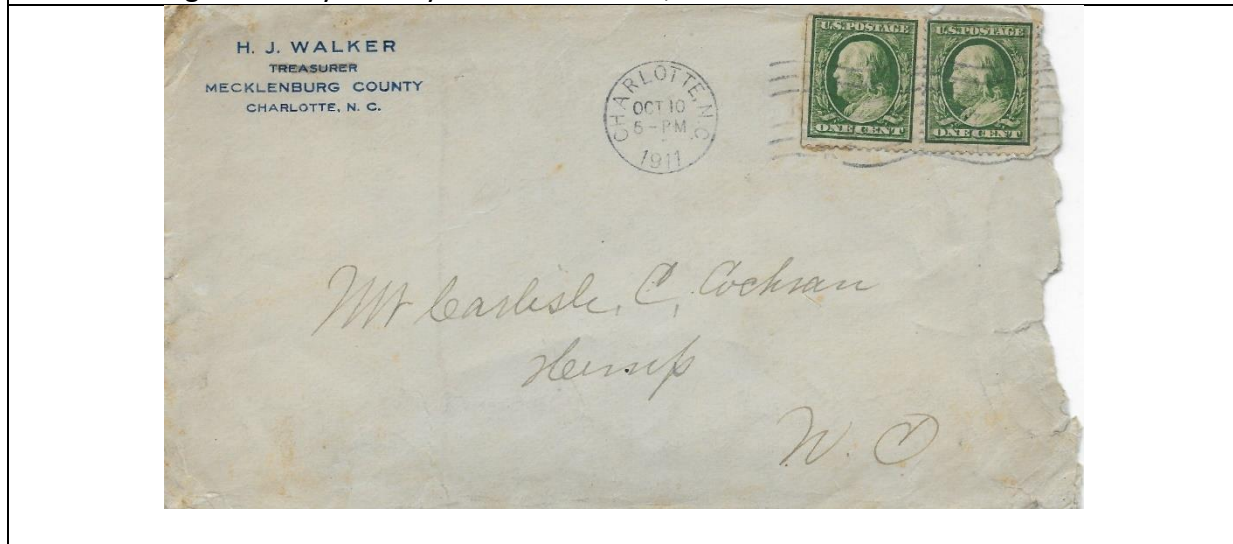 H. J. WALKER
TREASURER
MECKLENBURG COUNTY
CHARLOTTE, N. C.
CHARLOTTE, N.C.
OCT 10
5-PM
1911
U.S. POSTAGE
ONE CENT
U.S. POSTAGE
ONE CENT
Mr Carlisle, C, Cochran
Hemp
N. C